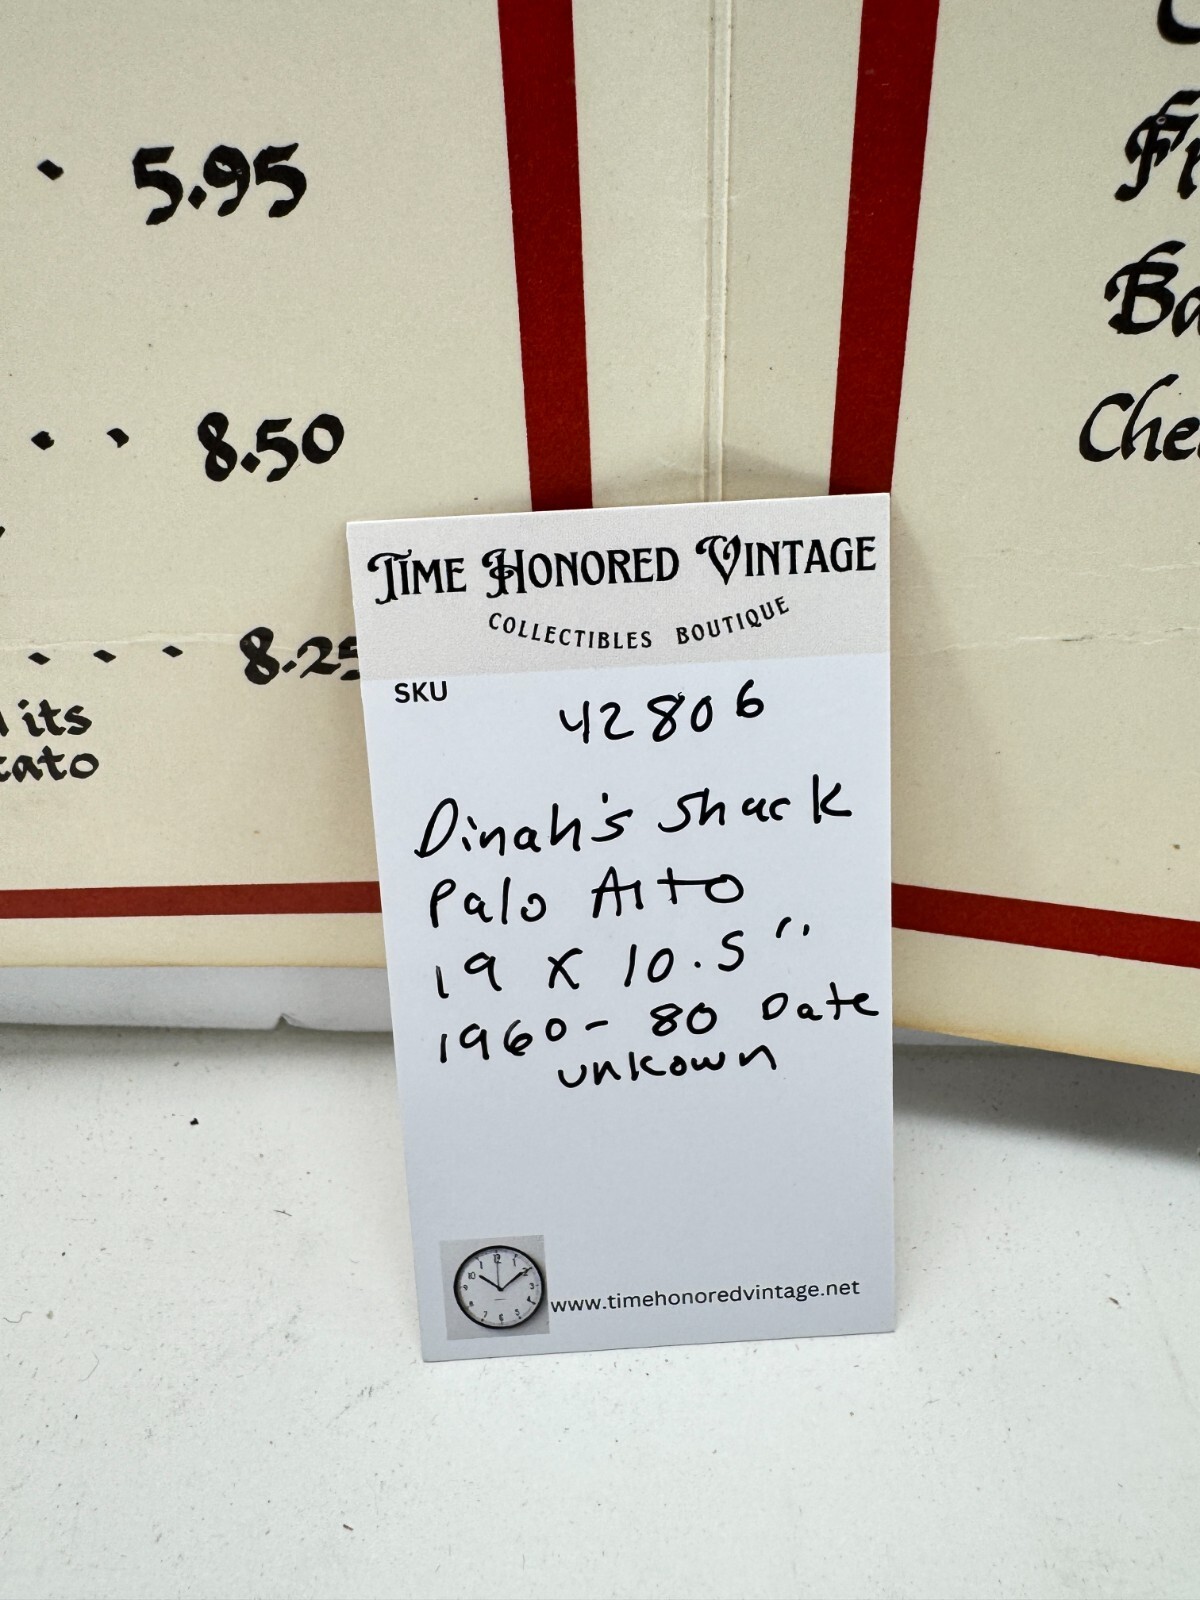 . 5.95
. . 8.50
. . . 8.25
its
Che
TIME HONORED VINTAGE
COLLECTIBLES BOUTIQUE
SKU
42806
Dinah's Shack
Palo Alto
19 X 10.5"
1960-80 Date
unkown
www.timehonoredvintage.net